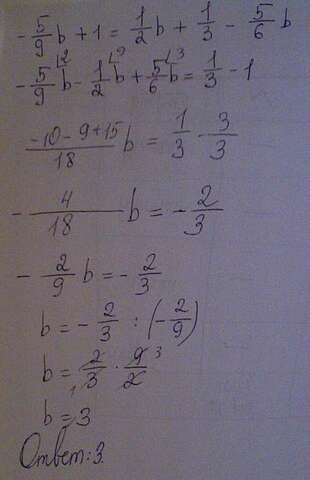 -5/9 b + 1 = 1/2 b + 1/3 - 5/6 b
-5/9 \2 b - 1/2 \9 b + 5/6 \3 b = 1/3 - 1
(-10-9+15)/18 b = 1/3 - 3/3
- 4/18 b = - 2/3
- 2/9 b = - 2/3
b = - 2/3 : (- 2/9)
b = 2/3 1 · 9/2 3
b = 3
Ответ: 3.